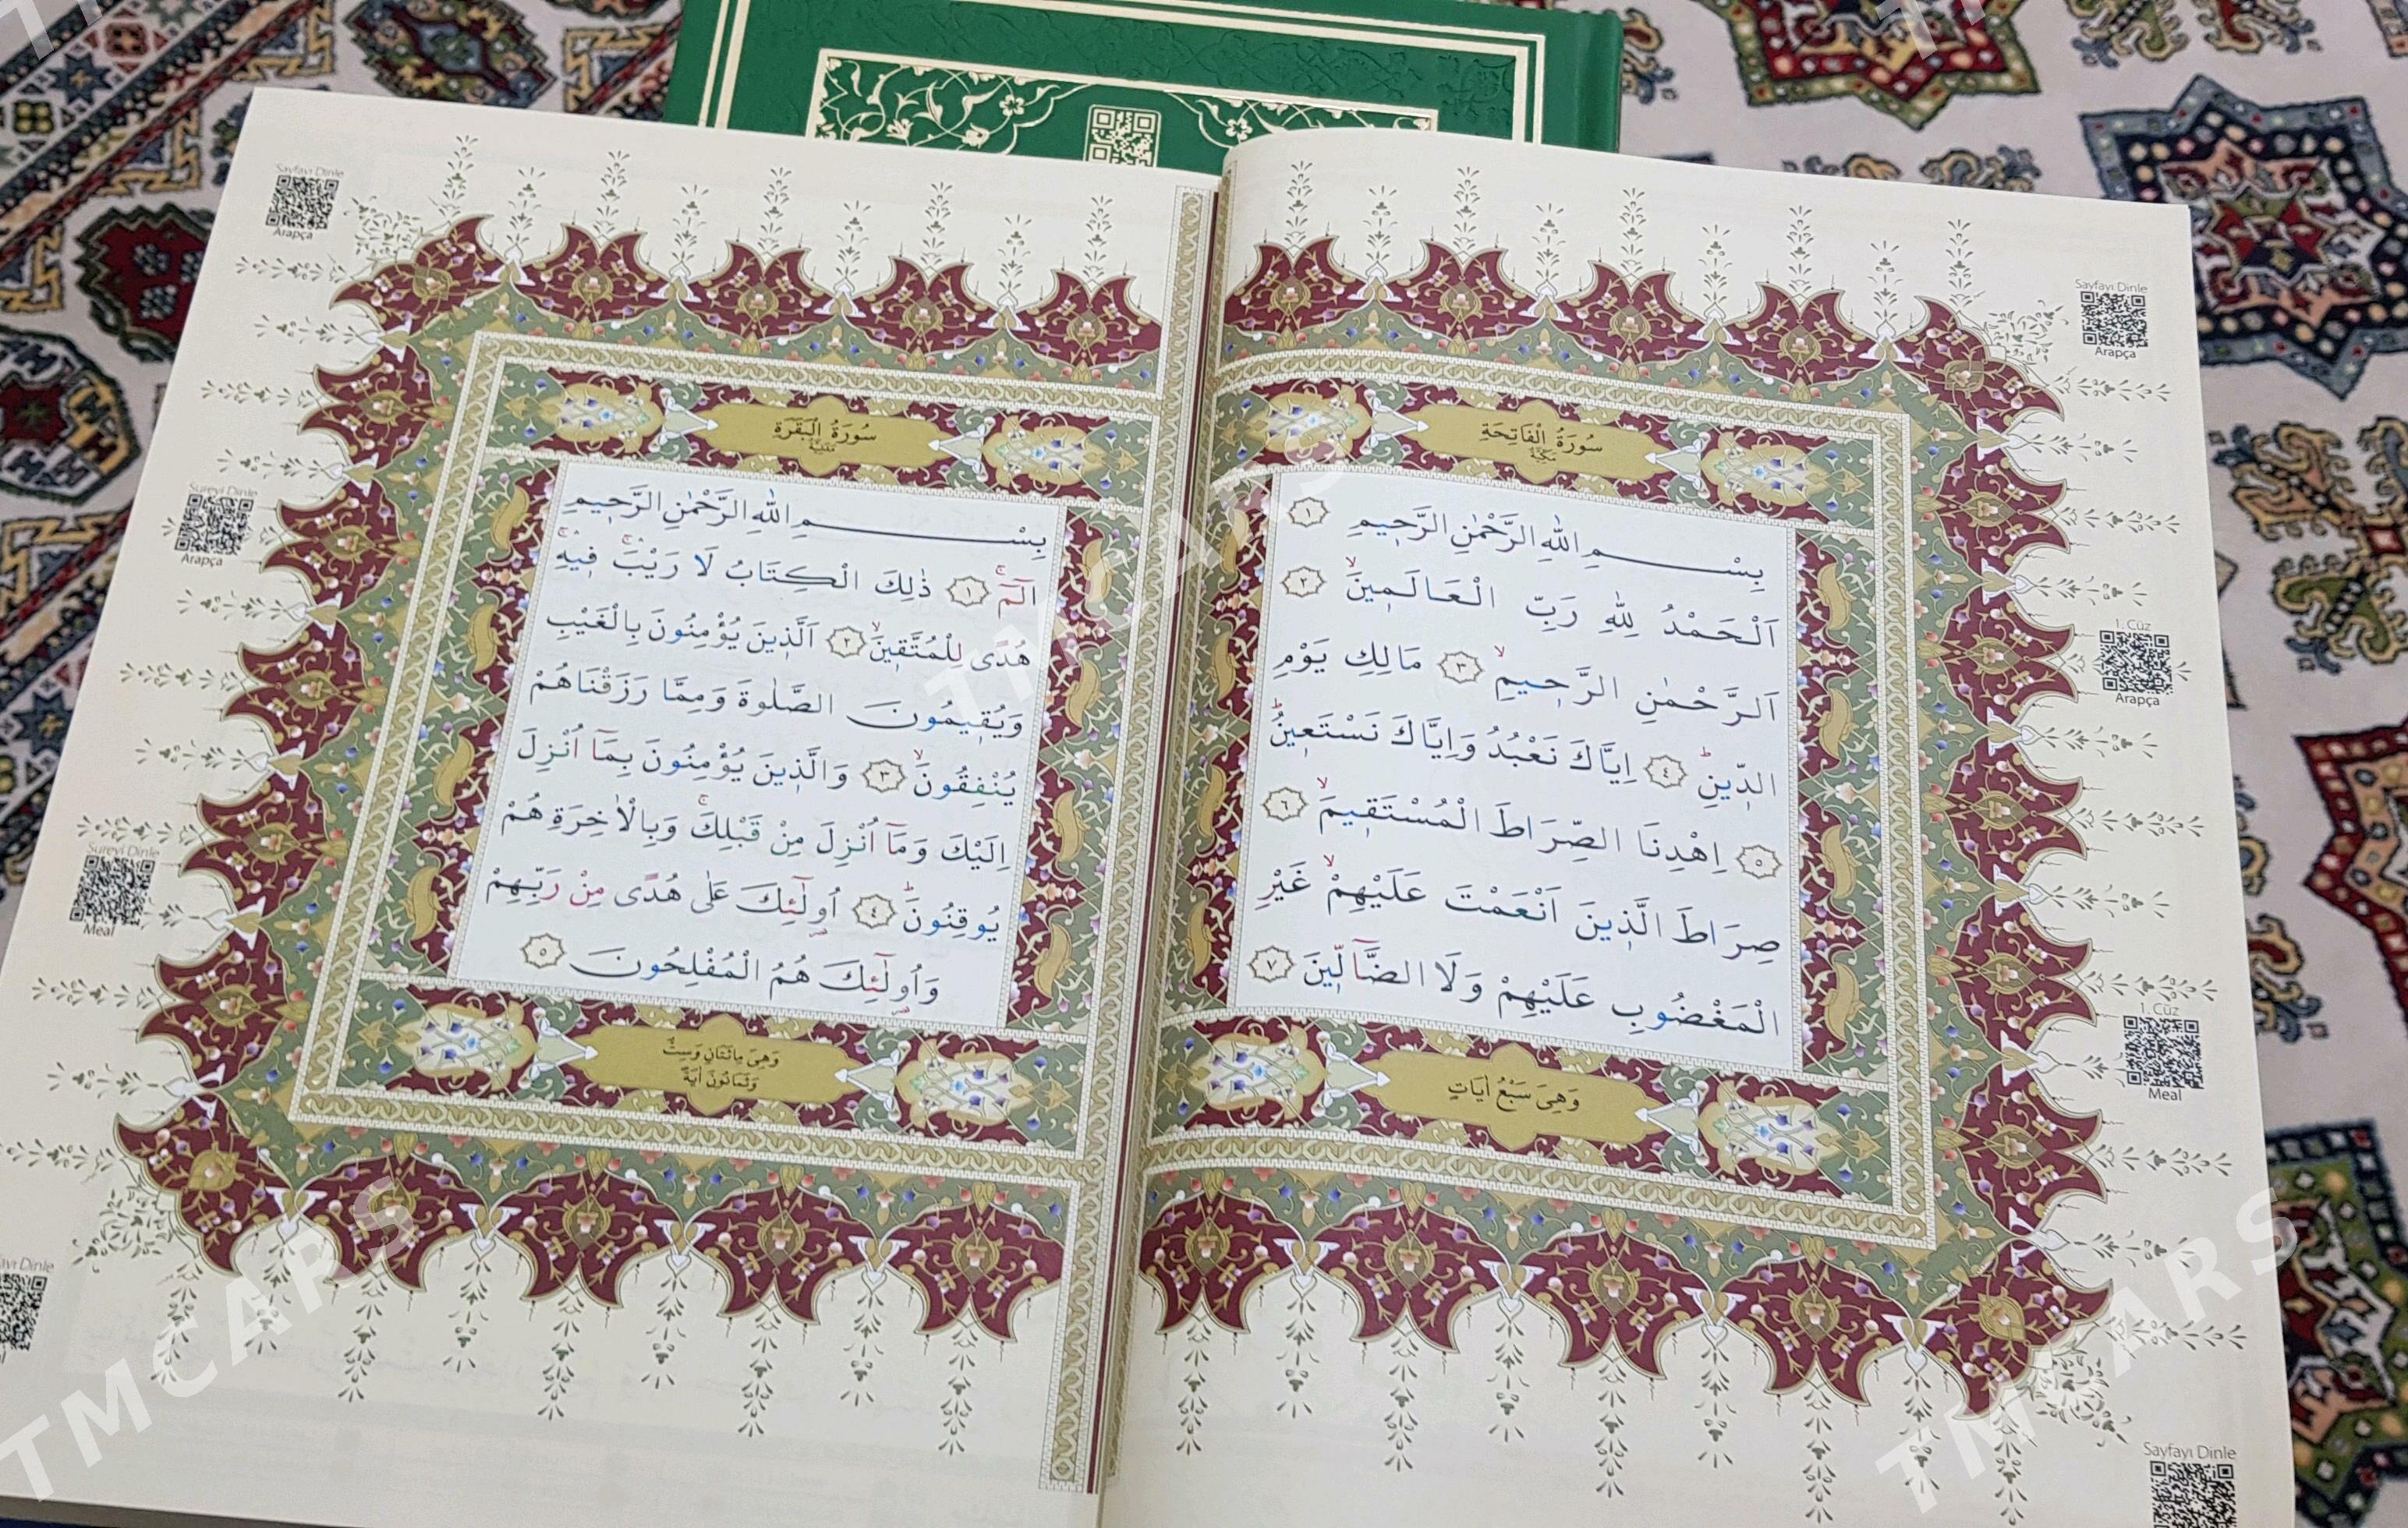 سُورَةُ الْفَاتِحَةِ
مَكِّيَّةٌ
بِسْــــــمِ اللّٰهِ الرَّحْمٰنِ الرَّح۪يمِ ﴿١﴾
اَلْحَمْدُ لِلّٰهِ رَبِّ الْعَالَم۪ينَۙ ﴿٢﴾
اَلرَّحْمٰنِ الرَّح۪يمِۙ ﴿٣﴾ مَالِكِ يَوْمِ
الدّ۪ينِۜ ﴿٤﴾ اِيَّاكَ نَعْبُدُ وَاِيَّاكَ نَسْتَع۪ينُۜ
﴿٥﴾ اِهْدِنَا الصِّرَاطَ الْمُسْتَق۪يمَۙ ﴿٦﴾
صِرَاطَ الَّذ۪ينَ اَنْعَمْتَ عَلَيْهِمْۙ غَيْرِ
الْمَغْضُوبِ عَلَيْهِمْ وَلَا الضَّٓالّ۪ينَ ﴿٧﴾
وَهِىَ سَبْعُ اٰيَاتٍ
سُورَةُ الْبَقَرَةِ
مَدَنِيَّةٌ
بِسْــــــمِ اللّٰهِ الرَّحْمٰنِ الرَّح۪يمِ
الٓمٓۚ ﴿١﴾ ذٰلِكَ الْكِتَابُ لَا رَيْبَۚۛ ف۪يهِۚۛ
هُدًى لِلْمُتَّق۪ينَۙ ﴿٢﴾ اَلَّذ۪ينَ يُؤْمِنُونَ بِالْغَيْبِ
وَيُق۪يمُونَ الصَّلٰوةَ وَمِمَّا رَزَقْنَاهُمْ
يُنْفِقُونَۙ ﴿٣﴾ وَالَّذ۪ينَ يُؤْمِنُونَ بِمَٓا اُنْزِلَ
اِلَيْكَ وَمَٓا اُنْزِلَ مِنْ قَبْلِكَۚ وَبِالْاٰخِرَةِ هُمْ
يُوقِنُونَۜ ﴿٤﴾ اُو۬لٰٓئِكَ عَلٰى هُدًى مِنْ رَبِّهِمْ
وَاُو۬لٰٓئِكَ هُمُ الْمُفْلِحُونَ ﴿٥﴾
وَهِىَ مِائَتَانِ وَسِتٌّ
وَثَمَانُونَ اٰيَةً
Sayfayı Dinle
Arapça
1. Cüz
Arapça
1. Cüz
Meal
Sayfayı Dinle
Sayfayı Dinle
Arapça
Sureyi Dinle
Arapça
Sureyi Dinle
Meal
TMCARS
TMCARS
TMCARS